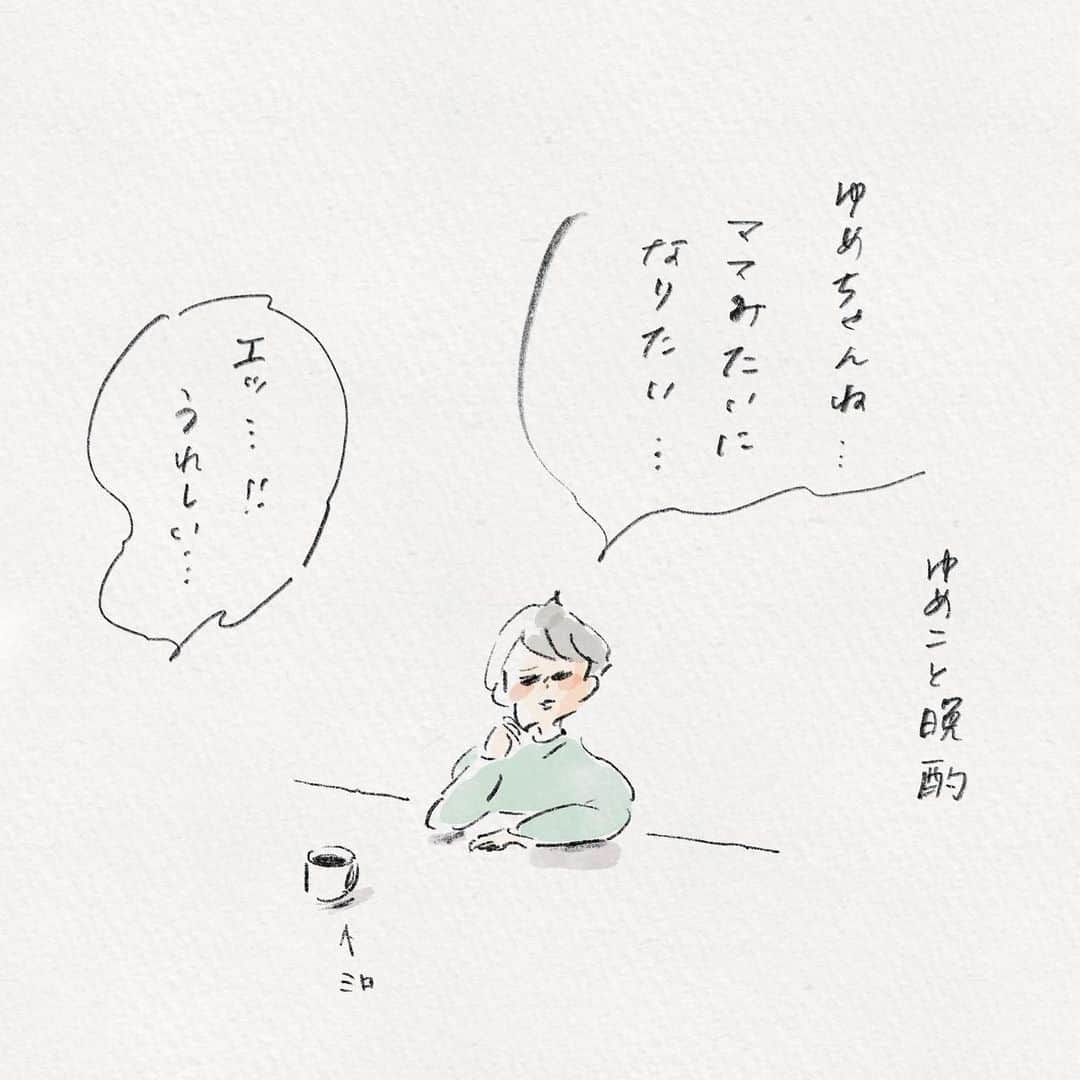 ゆめこと晩酌
ゆめちゃんね…
ママみたいに
なりたい…
エッ…!!
うれしい…
↑
ミロ